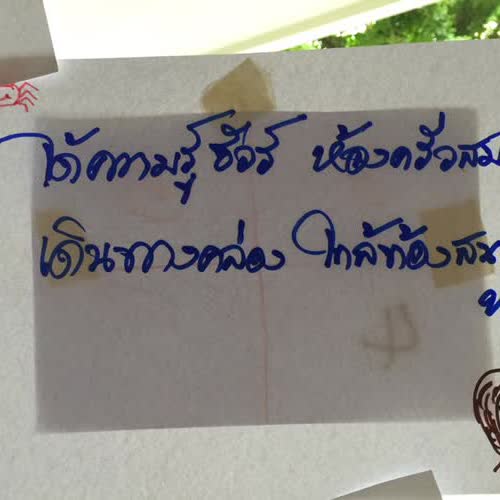 ได้ความรู้ ชัวร์ ห้องครัวสม
เดินทางคล่อง ใกล้ห้องสม